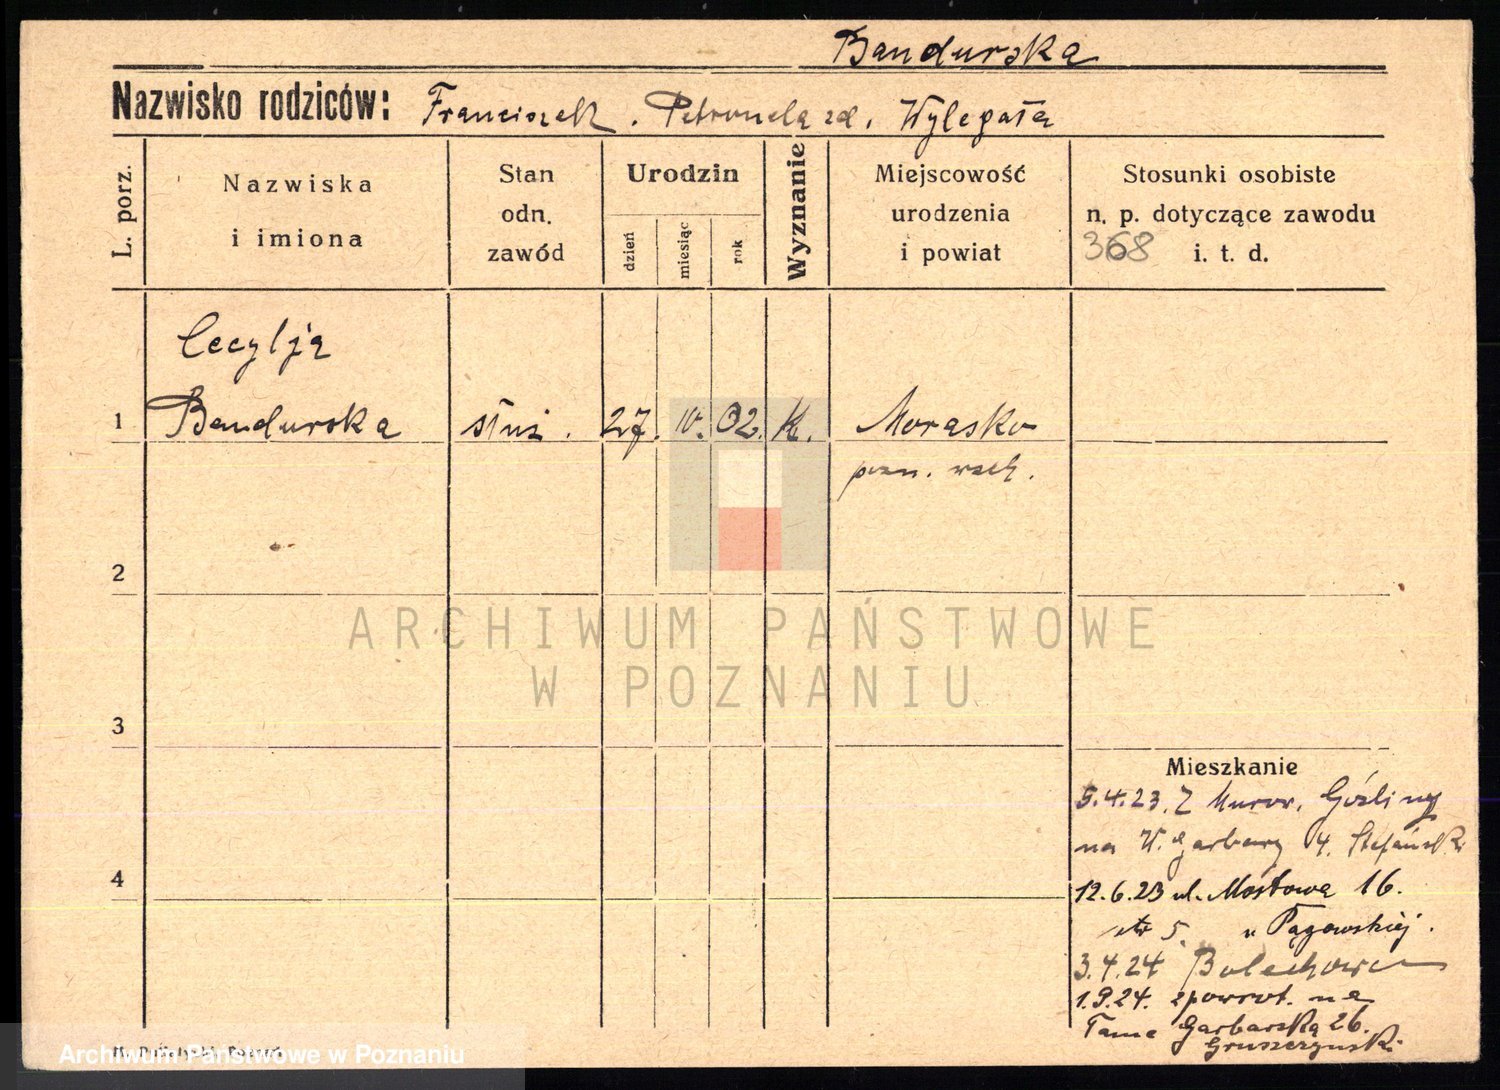 Bandurska
Nazwisko rodziców: Franciszek . Petronela zd. Wylegała
L. porz.
Nazwiska
i imiona
Stan
odn.
zawód
Urodzin
dzień
miesiąc
rok
Wyznanie
Miejscowość
urodzenia
i powiat
Stosunki osobiste
n. p. dotyczące zawodu
i. t. d.
368
Cecylja
1 Bandurska służ. 27. IV. 02. K. Morasko
pozn. wsch.
2
3
4
ARCHIWUM PAŃSTWOWE
W POZNANIU
Mieszkanie
5.4.23. Z Murow. Gośliny
na W. Garbary 4. Stefański
12.6.23 ul. Mostowa 16.
str 5. u Pągowskiej.
3.4.24 Bolechowo
1.9.24. zpowrot. na
Tama Garbarska 26.
Gruszczyński
Archiwum Państwowe w Poznaniu